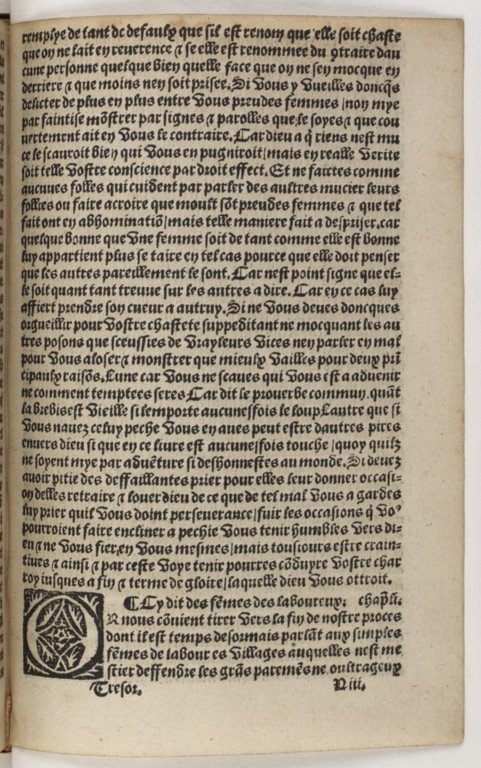 remplye de tant de defaulx que sil est renom que elle soit chaste
que on ne lait en reuerence ⁊ se elle est renommee du ꝯtraire dau
cune personne quelque bien quelle face que on ne sen mocque en
derriere ⁊ que moins nen soit prisee. Si vous y vueilles doncq̄s
delicter de plus en plus entre vous preudes femmes / non mye
par faintise mōstrer par signes ⁊ parolles que le soyes ⁊ que cou
uertement ait en vous le contraire. Car dieu a q̄ riens nest mu
ce le scauroit bien qui vous en pugniroit / mais en realle verite
soit telle vostre conscience par droit effect. Et ne faictes comme
aucunes folles qui cuident par parler des aultres mucier leurs
follies ou faire acroire que moult sōt preudes femmes ⁊ que tel
fait ont en abhominatiō / mais telle maniere fait a despriser. car
quelque bonne que vne femme soit de tant comme elle est bonne
luy appartient plus se taire en tel cas pource que elle doit penser
que les autres pareillement le sont. Car nest point signe que el-
le soit quant tant treuue sur les autres a dire. Car en ce cas luy
affiert prendre son cueur a autruy. Si ne vous deues doncques
orgueillir pour vostre chastete suppeditant ne mocquant les au
tres posons que sceussies de vray leurs vices nen parler en mal
pour vous aloser ⁊ monstrer que mieulx vailles pour deux prī
cipaulx raisōs. Lune car vous ne scaues qui vous est a aduenir
ne comment temptees seres Car dit le prouerbe commun. quāt
la brebis est vieille si lemporte aucunesfois le loup Lautre que si
vous nauez celuy peche vous en aues peut estre dautres pires
enuers dieu si que en ce liure est aucune / fois touche / quoy quilz
ne soyent mye par aduēture si deshonnestes au monde. Si deuez
auoir pitie des deffaillantes prier pour elles leur donner occasi-
on delles retraire ⁊ louer dieu de ce que de tel mal vous a gardes
luy prier quil vous doint perseuerance / fuir les occasions q̄ voꝰ
pourroient faire encliner a pechie vous tenir humbles vers di-
eu ⁊ ne vous fier en vous mesmes / mais tousiours estre crain-
tiues ⁊ ainsi ⁊ par ceste voye tenir pourres cōduyre vostre char
roy iusques a fin ⁊ terme de gloire / laquelle dieu vous ottroit.
¶ Cy dit des fēmes des laboureux. chap.
OR nous cōuient tirer vers la fin de nostre proces
dont il est temps desormais parlāt aux simples
fēmes de labour es villages auquelles nest me
stier deffendre les grās paremēs ne oultrageux
Tresor. Niii.